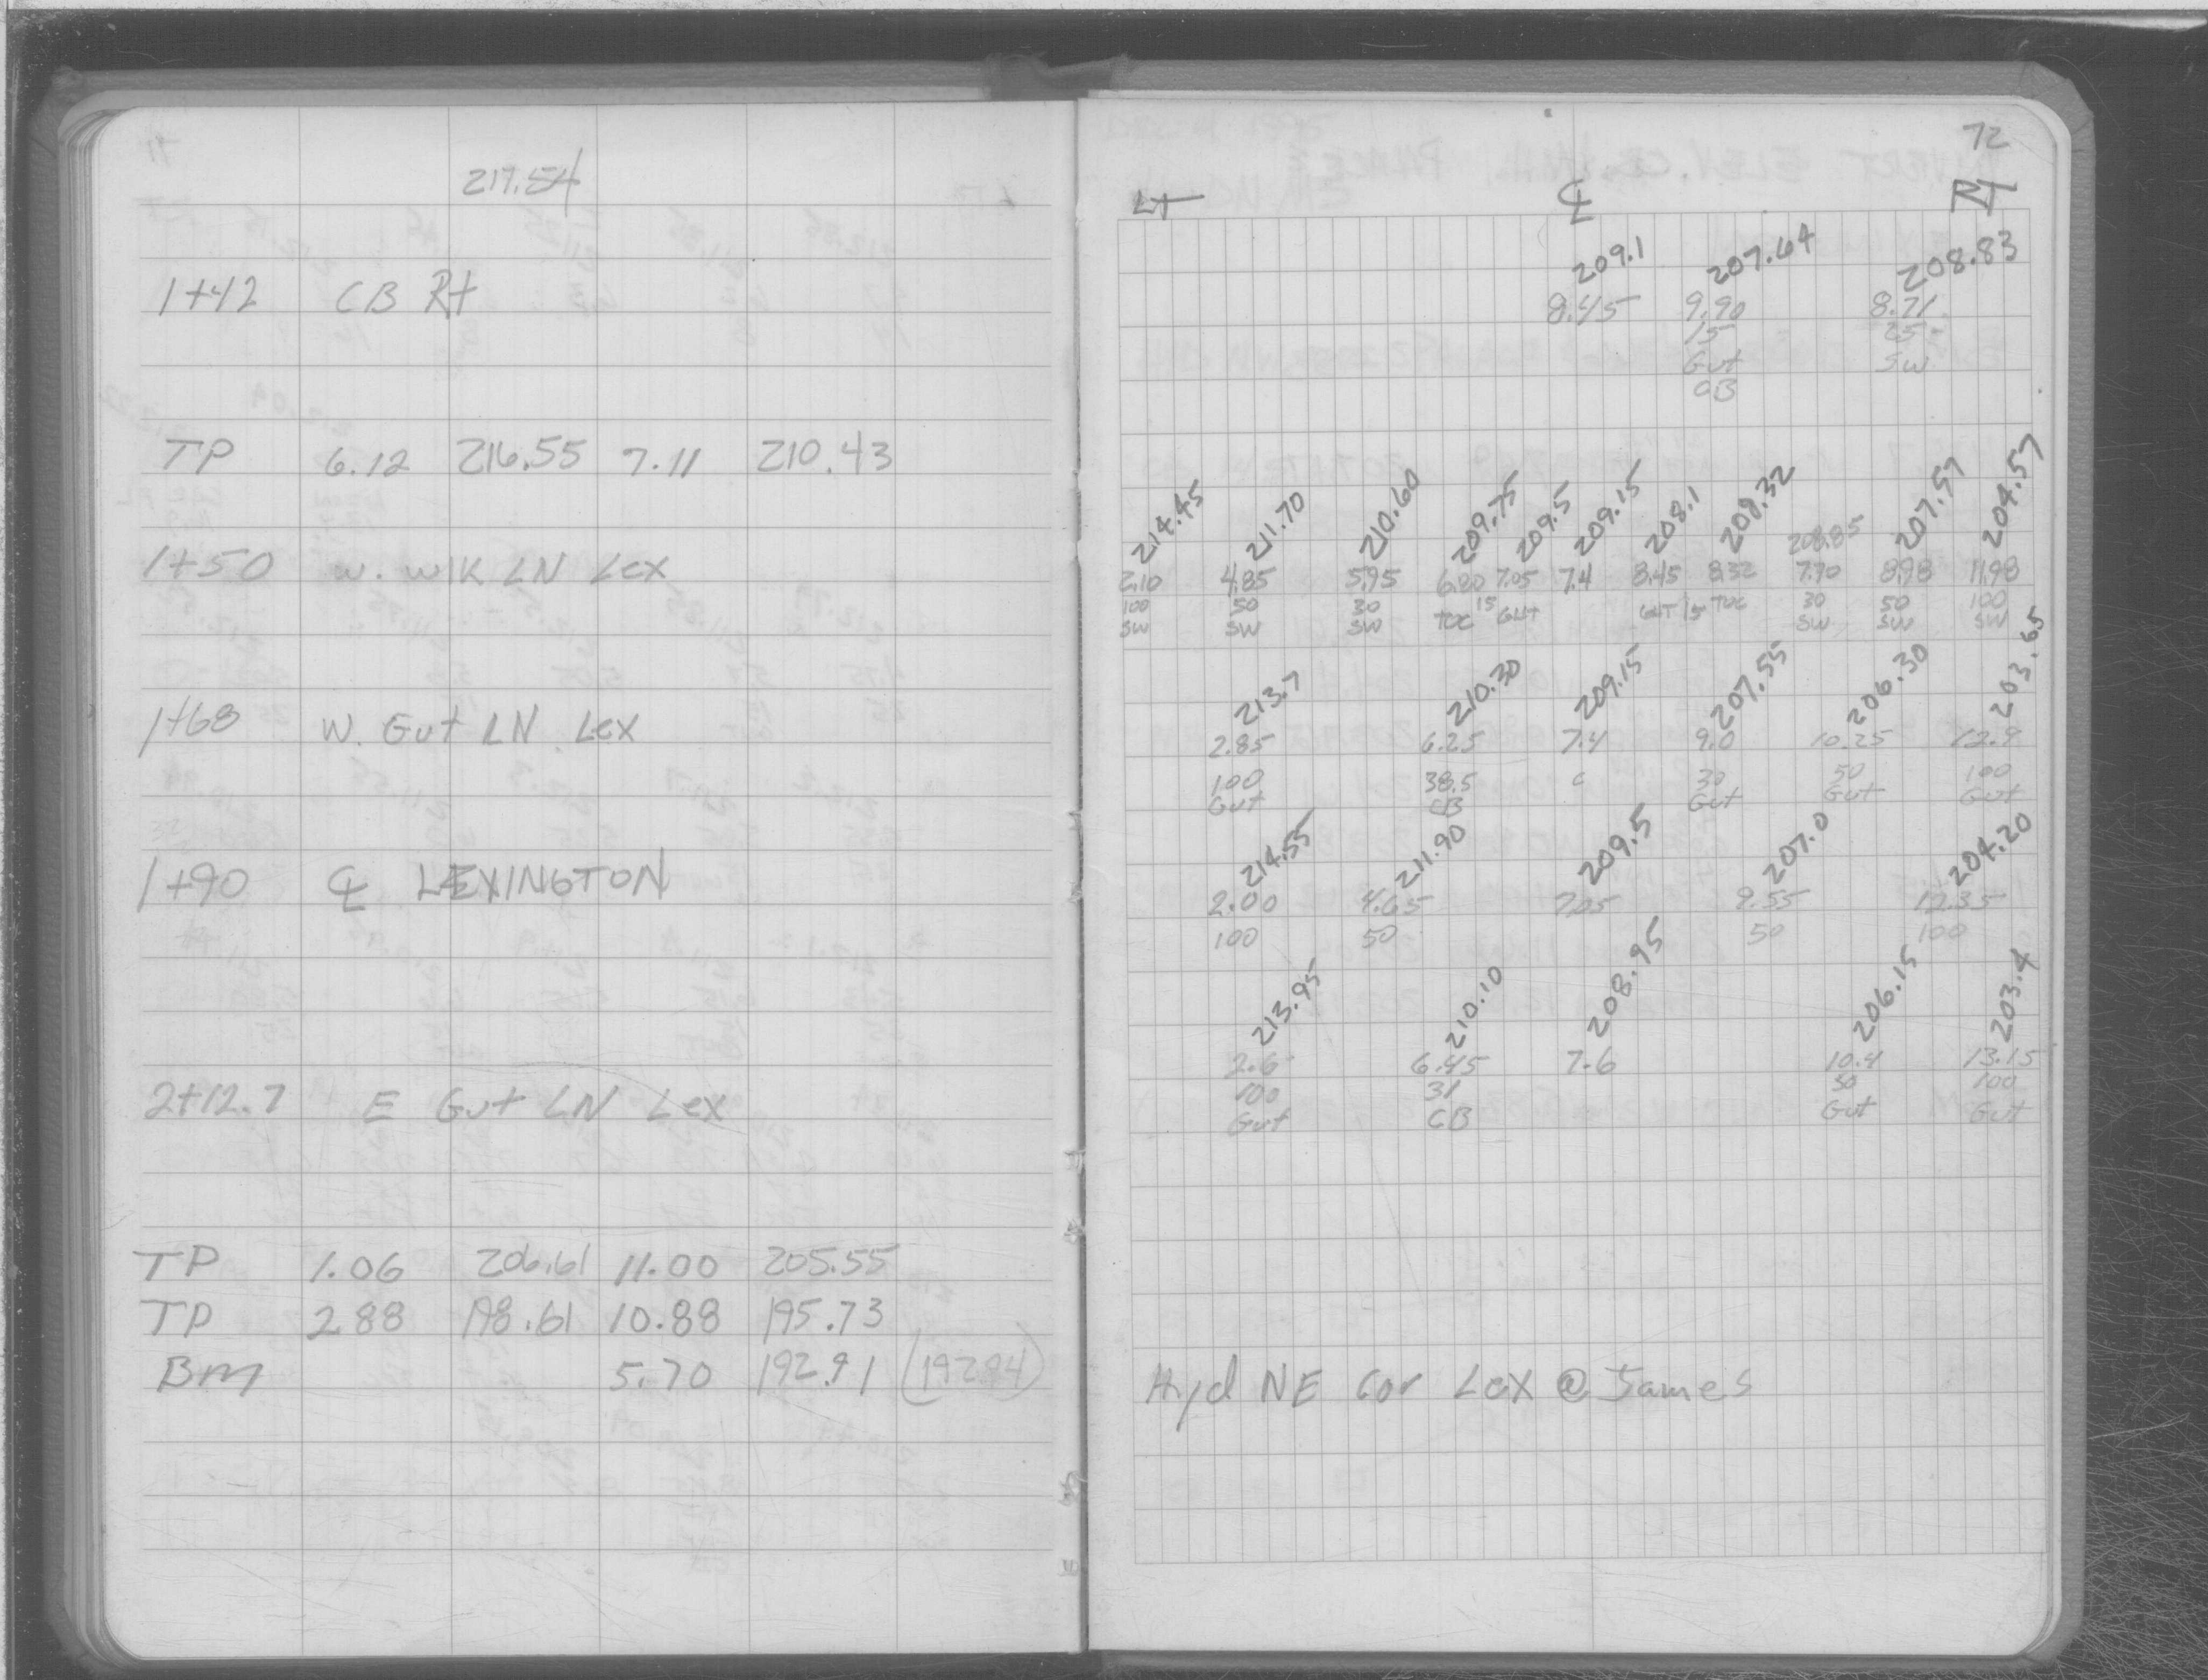 217.54
1+42 CB Rt
TP 6.12 216.55 7.11 210.43
1+50 W. WIK LN Lex
1+68 W. Gut LN Lex
1+90 ℄ LEXINGTON
2+12.7 E Gut LN Lex
TP 1.06 206.61 11.00 205.55
TP 2.88 198.61 10.88 195.73
Bm 5.70 192.91 (192.94)
72
LT ℄ RT
209.1 207.64 208.83
8.45 9.90 8.71
15 25
Gut SW
CB
214.45 211.70 210.60 209.75 209.5 209.15 208.1 208.32 208.85 207.57 204.57
2.10 4.85 5.95 6.80 7.05 7.4 8.45 8.32 7.70 8.98 11.98
100 50 30 TOC 15 GUT GUT 15 TOC 30 50 100
SW SW SW SW SW SW
213.7 210.30 209.15 207.55 206.30 203.65
2.85 6.25 7.4 9.0 10.25 12.9
100 38.5 c 30 50 100
Gut CB Gut Gut Gut
214.55 211.90 209.5 207.0 204.20
2.00 4.65 7.05 9.55 12.35
100 50 50 100
213.95 210.10 208.95 206.15 203.4
2.6 6.45 7.6 10.4 13.15
100 31 50 100
Gut CB Gut Gut
Hyd NE Cor Lex @ James